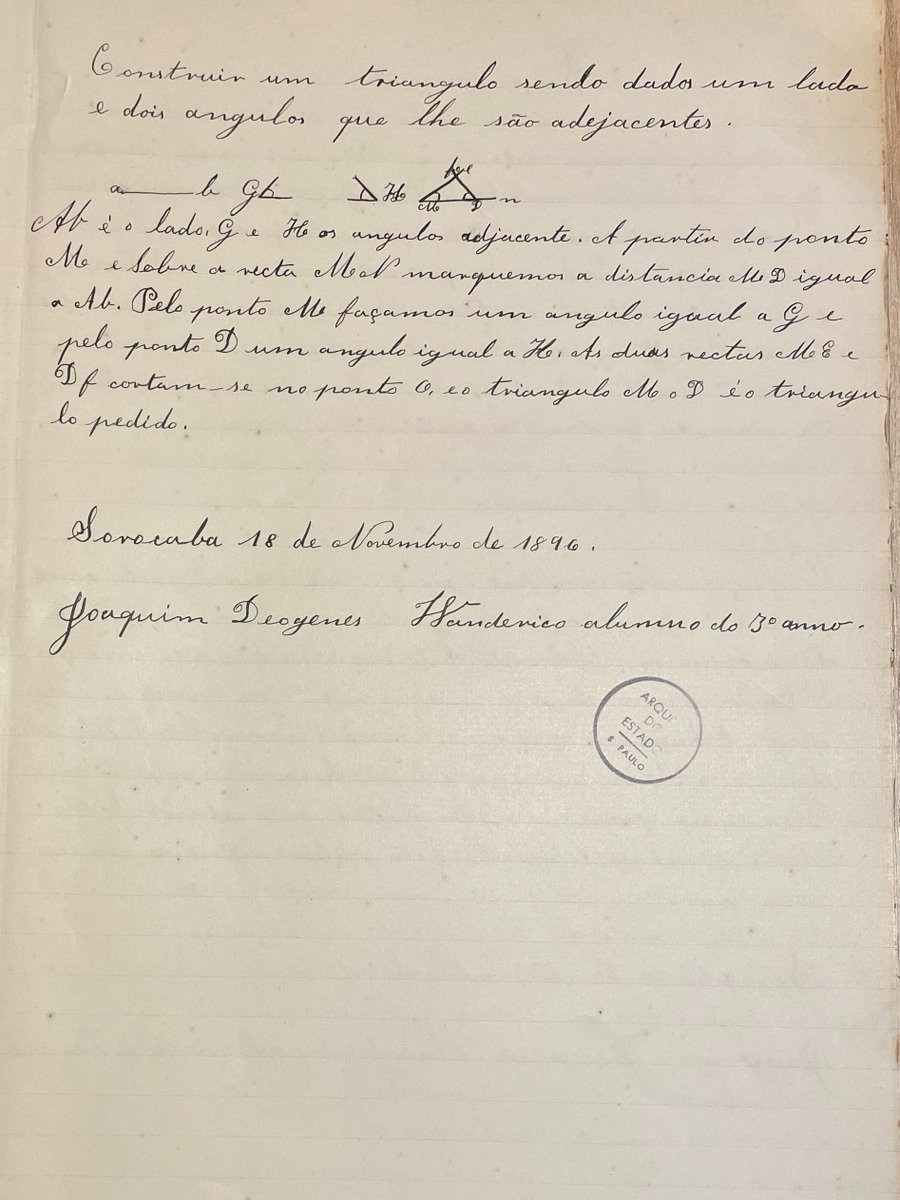 Construir um triangulo sendo dados um lado
e dois angulos que lhe são adejacentes.
a b G H M D n
Ab é o lado, G e H os angulos adjacente. A partir do ponto
M e sobre a recta M N marquemos a distancia M D igual
a Ab. Pelo ponto M façamos um angulo igual a G e
pelo ponto D um angulo igual a H. As duas rectas M E e
D f cortam-se no ponto O, e o triangulo M o D é o triangu-
lo pedido.
Sorocaba 18 de Novembro de 1896.
Joaquim Deogenes Wanderico alumno do 3º anno.
ARQUI
DO
ESTADO
S PAULO